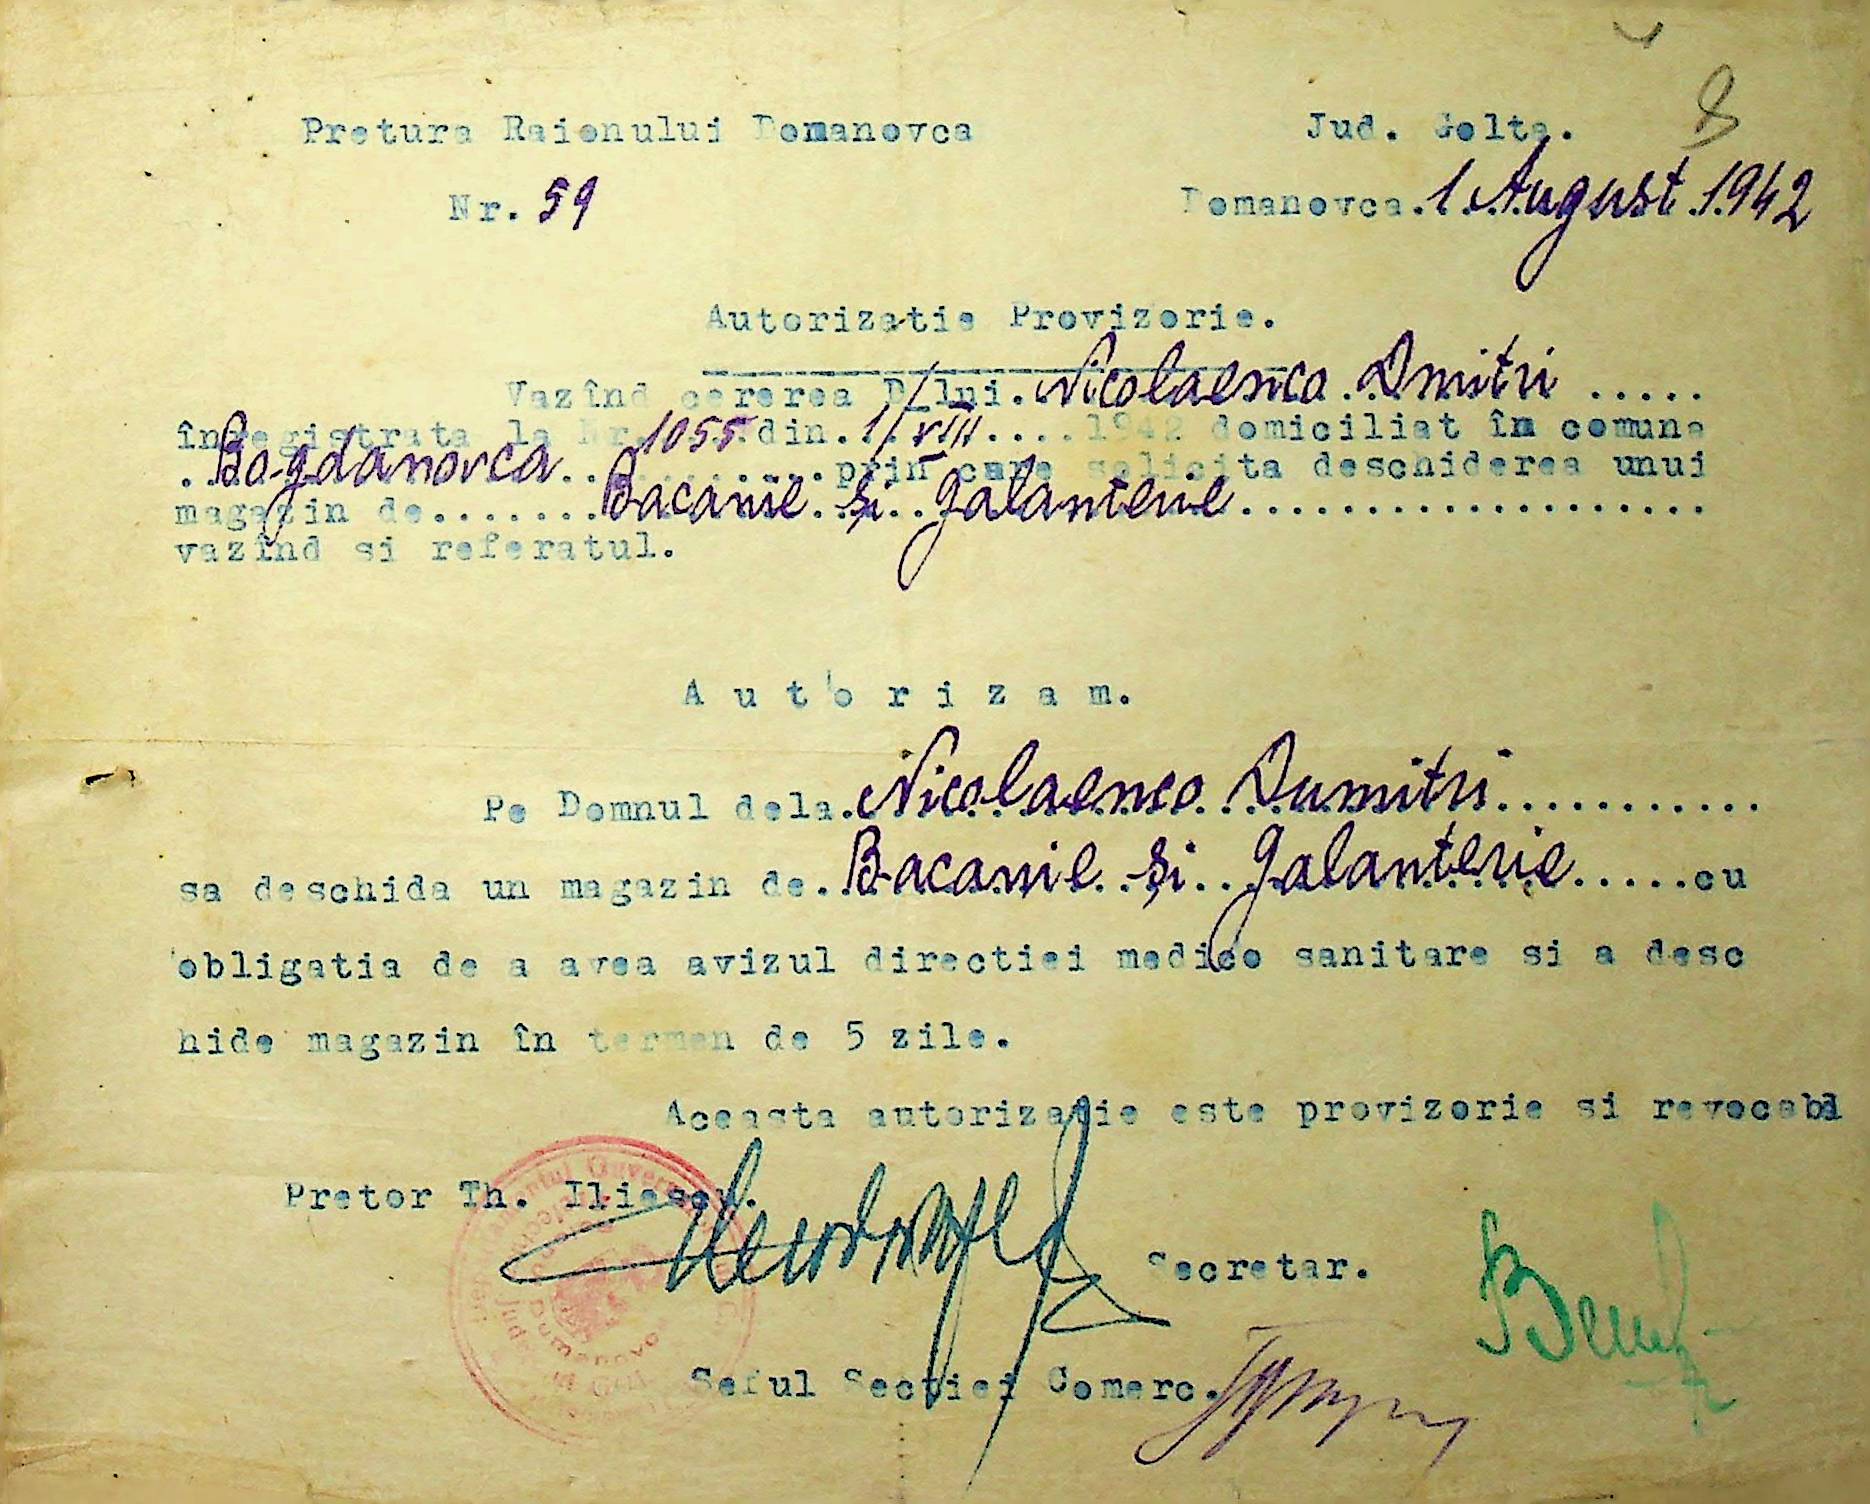 8
Pretura Raionului Domanovca Jud. Golta.
Nr. 59 Domanovca. 1 August 1942
Autorizatie Provizorie.
Vazînd cererea D_lui. Nicolaenco Dmitri .....
înregistrata la Nr. 1055 din. 1/VIII .... 1942 domiciliat în comuna
. Bogdanovca ........... prin care solicita deschiderea unui
magazin de ....... Bacanie și Galanterie ...................
vazînd si referatul.
Autorizam.
Pe Domnul dela. Nicolaenco Dumitri ...........
sa deschida un magazin de.. Bacanie și Galanterie ..... cu
obligatia de a avea avizul directiei medico sanitare si a desc
hide magazin în termen de 5 zile.
Aceasta autorizatie este provizorie si revocabil
Pretor Th. Iliescu.
Secretar.
Seful Sectiei Comerc.